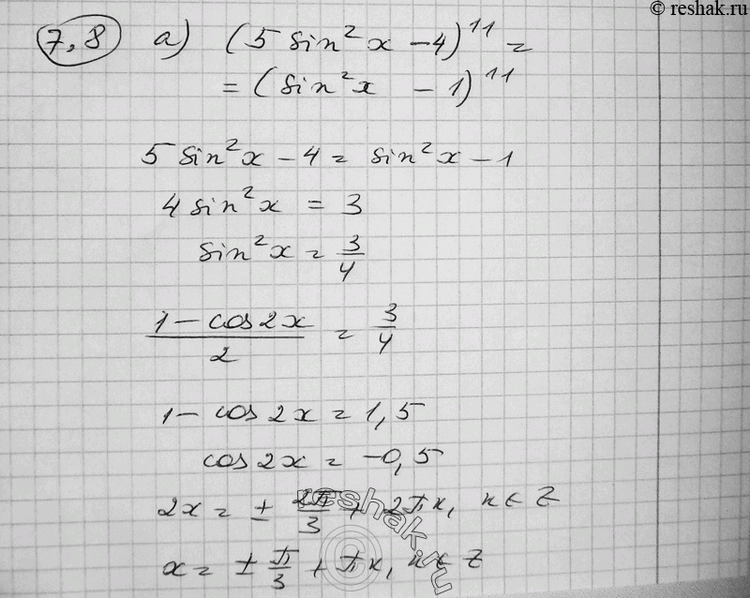 © reshak.ru
7,8 а) (5 sin²x – 4)¹¹ =
= (sin²x – 1)¹¹
5 sin²x – 4 = sin²x – 1
4 sin²x = 3
sin²x = 3/4
(1 – cos2x)/2 = 3/4
1 – cos 2x = 1,5
cos 2x = –0,5
2x = ± 2π/3 + 2πk, k ∈ Z
x = ± π/3 + πk, k ∈ Z
reshak.ru
©